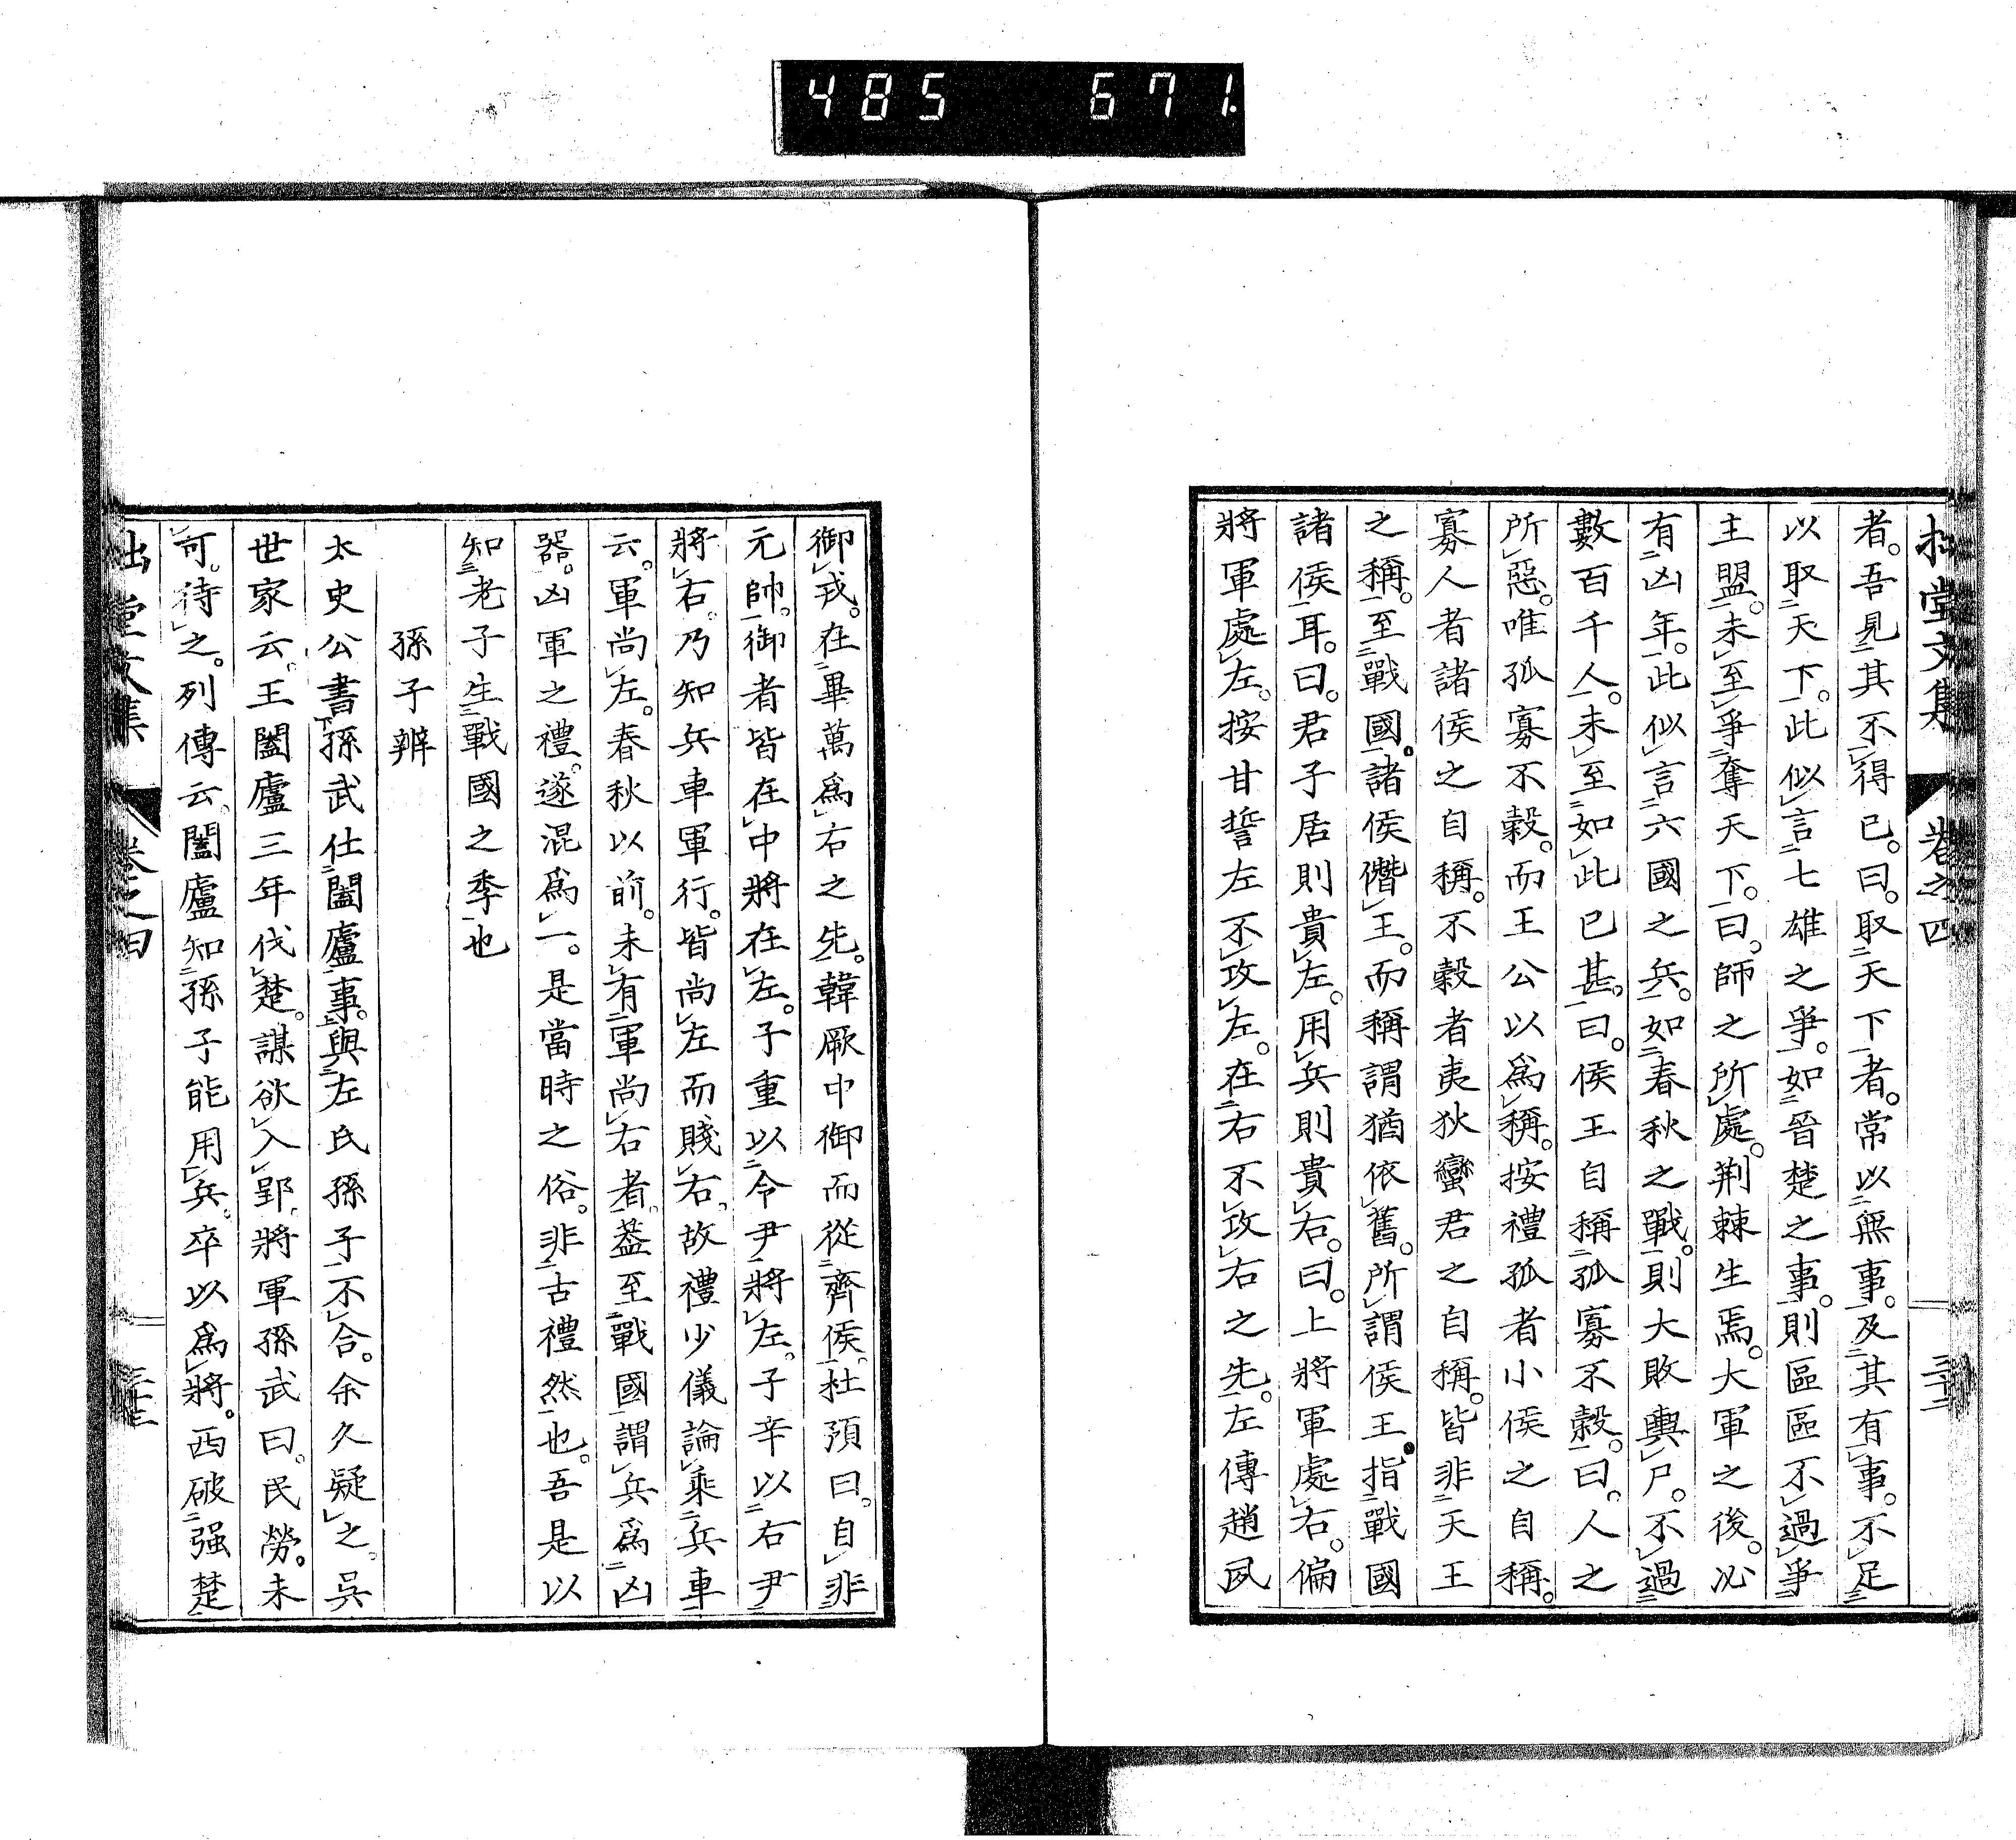 485 671
拙堂文集 卷之四
者。吾見其不得已。曰。取天下者。常以無事。及其有事。不足
以取天下。此似言七雄之爭。如晉楚之事。則區區不過爭
主盟。未至爭奪天下。曰。師之所處。荆棘生焉。大軍之後。必
有凶年。此似言六國之兵。如春秋之戰。則大敗輿尸。不過
數百千人。未至如此已甚。曰。侯王自稱孤寡不穀。曰。人之
所惡。唯孤寡不穀。而王公以爲稱。按禮孤者小侯之自稱。
寡人者諸侯之自稱。不穀者夷狄蠻君之自稱。皆非天王
之稱。至戰國。諸侯僭王。而稱謂猶依舊。所謂侯王。指戰國
諸侯耳。曰。君子居則貴左。用兵則貴右。曰。上將軍處右。偏
將軍處左。按甘誓左不攻左。在右不攻右之先。左傳趙夙
御戎。在畢萬爲右之先。韓厥中御而從齊侯。杜預曰。自非
元帥。御者皆在中將在左。子重以令尹將左。子辛以右尹
將右。乃知兵車軍行。皆尚左而賤右。故禮少儀論乘兵車
云。軍尚左。春秋以前。未有軍尚右者。葢至戰國謂兵爲凶
器。凶軍之禮。遂混爲一。是當時之俗。非古禮然也。吾是以
知老子生戰國之季也
孫子辨
太史公書孫武仕闔廬事。與左氏孫子不合。余久疑之。吳
世家云。王闔廬三年伐楚。謀欲入郢。將軍孫武曰。民勞。未
可。待之。列傳云。闔廬知孫子能用兵。卒以爲將。西破强楚
拙堂文集 卷之四